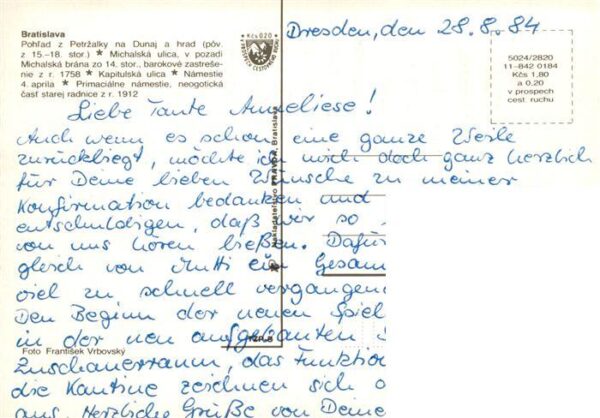 Bratislava
Pohľad z Petržalky na Dunaj a hrad (pôv.
z 15.—18. stor.) ★ Michalská ulica, v pozadí
Michalská brána zo 14. stor., barokové zastreše-
nie z r. 1758 ★ Kapitulská ulica ★ Námestie
4. apríla ★ Primaciálne námestie, neogotická
časť starej radnice z r. 1912
Kčs 0,20
Dresden, den 28.8.84
5024/2820
11-842 0184
Kčs 1,80
a 0,20
v prospech
cest. ruchu
Liebe Tante Anneliese!
Auch wenn es schon eine ganze Weile
zurückliegt, möchte ich mich doch ganz herzlich
für Deine lieben Wünsche zu meiner
Konfirmation bedanken und
entschuldigen, daß wir so
von uns hören ließen. Dafür
gleich von Mutti ein Gesam
viel zu schnell vergangen
Den Beginn der neuen Spiel
in der neu aufgebauten S
Zuschauerraum, das Funktion
die Kantine zeichnen sich
aus. Herzliche Grüße von Deine
Nakladateľstvo PRAVDA, Bratislava
Foto František Vrbovský